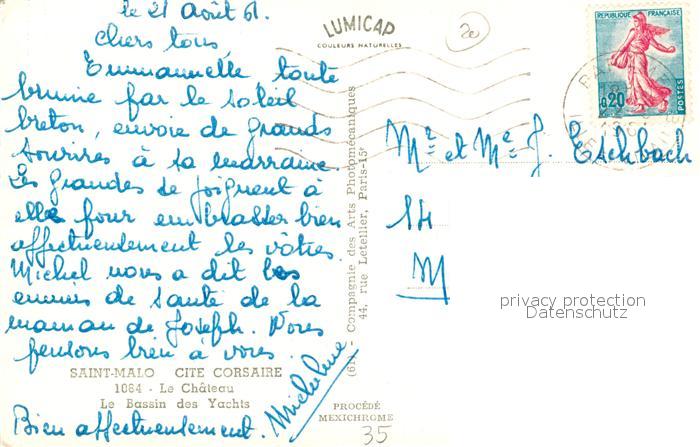 le 21 Août 61.
Chers tous,
Emmannuelle toute
brunie par le soleil
breton, envoie de grands
sourires à sa marraine.
Les grandes se joignent à
elle pour embrasser bien
affectueusement les vôtres.
Michel nous a dit les
ennuis de santé de la
maman de Joseph. Nous
pensons bien à vous.
Bien affectueusement. Micheline
SAINT-MALO CITE CORSAIRE
1064 - Le Château
Le Bassin des Yachts
LUMICAP
COULEURS NATURELLES
20
(61) - Compagnie des Arts Photomécaniques
44, rue Letellier, Paris-15e
PROCÉDÉ
MEXICHROME
35
REPUBLIQUE FRANÇAISE
0,20
POSTES
Mr et Me J. Eschbach
14
M
privacy protection
Datenschutz